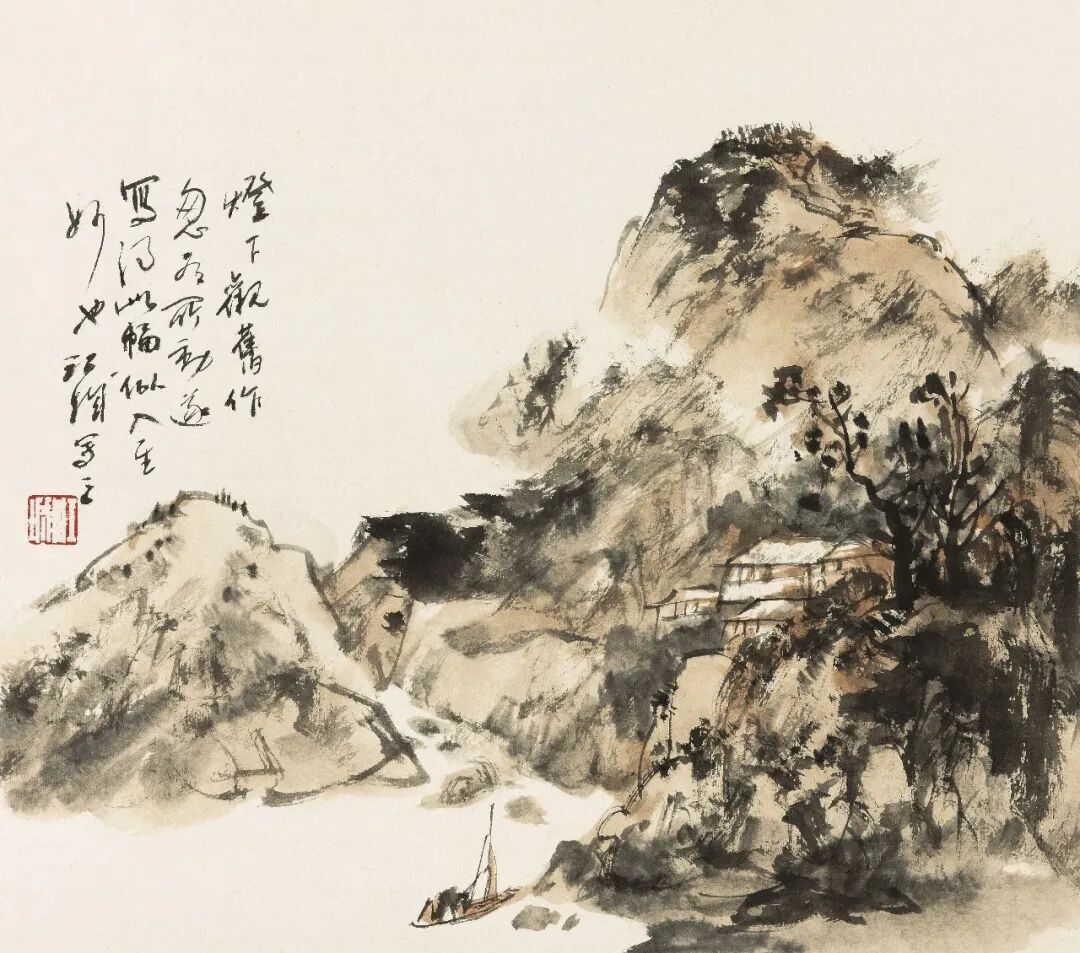 燈下觀舊作
忽有所動遂
寫得此幅似入至
妙也